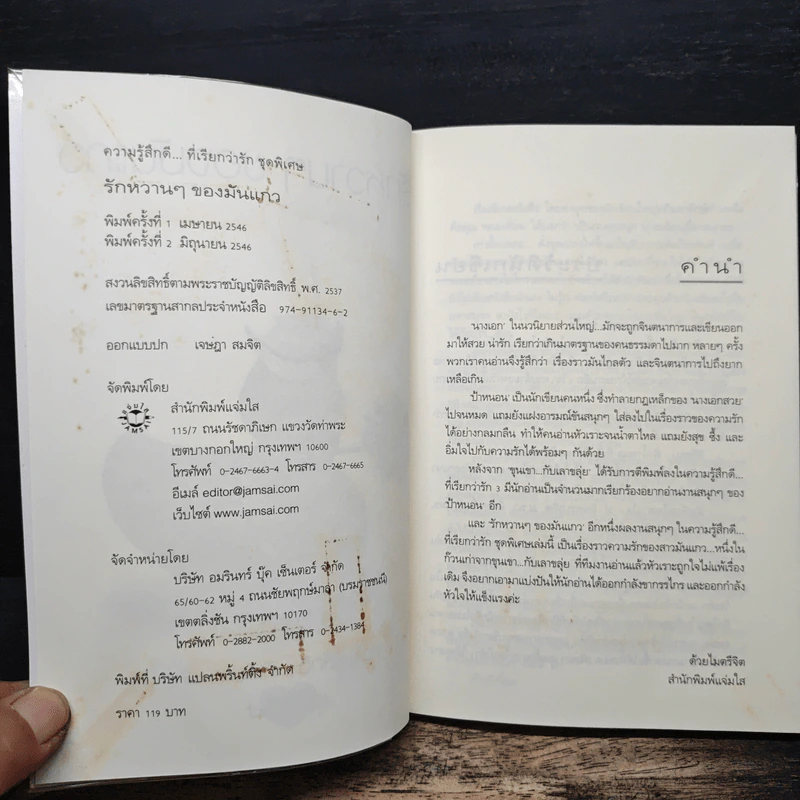 ความรู้สึกดี... ที่เรียกว่ารัก ชุดพิเศษ
รักหวานๆ ของมันแกว
พิมพ์ครั้งที่ 1 เมษายน 2546
พิมพ์ครั้งที่ 2 มิถุนายน 2546
สงวนลิขสิทธิ์ตามพระราชบัญญัติลิขสิทธิ์ พ.ศ. 2537
เลขมาตรฐานสากลประจำหนังสือ 974-91134-6-2
ออกแบบปก เจษฎา สมจิต
จัดพิมพ์โดย
สำนักพิมพ์แจ่มใส
115/7 ถนนรัชดาภิเษก แขวงวัดท่าพระ
เขตบางกอกใหญ่ กรุงเทพฯ 10600
โทรศัพท์ 0-2467-6663-4 โทรสาร 0-2467-6665
อีเมล์ editor@jamsai.com
เว็บไซต์ www.jamsai.com
จัดจำหน่ายโดย
บริษัท อมรินทร์ บุ๊ค เซ็นเตอร์ จำกัด
65/60-62 หมู่ 4 ถนนชัยพฤกษ์มาลา (บรมราชชนนี)
เขตตลิ่งชัน กรุงเทพฯ 10170
โทรศัพท์ 0-2882-2000 โทรสาร 0-2434-1384
พิมพ์ที่ บริษัท แปลนพริ้นท์ติ้ง จำกัด
ราคา 119 บาท
คำนำ
'นางเอก' ในนวนิยายส่วนใหญ่...มักจะถูกจินตนาการและเขียนออก
มาให้สวย น่ารัก เรียกว่าเกินมาตรฐานของคนธรรมดาไปมาก หลายๆ ครั้ง
พวกเราคนอ่านจึงรู้สึกว่า เรื่องราวมันไกลตัว และจินตนาการไปถึงยาก
เหลือเกิน
'ป้าหนอน' เป็นนักเขียนคนหนึ่ง ซึ่งทำลายกฎเหล็กของ 'นางเอกสวย'
ไปจนหมด แถมยังแฝงอารมณ์ขันสนุกๆ ใส่ลงไปในเรื่องราวของความรัก
ได้อย่างกลมกลืน ทำให้คนอ่านหัวเราะจนน้ำตาไหล แถมยังสุข ซึ้ง และ
อิ่มใจไปกับความรักได้พร้อมๆ กันด้วย
หลังจาก 'ขุนเขา...กับเลาขลุ่ย' ได้รับการตีพิมพ์ลงในความรู้สึกดี...
ที่เรียกว่ารัก 3 มีนักอ่านเป็นจำนวนมากเรียกร้องอยากอ่านงานสนุกๆ ของ
'ป้าหนอน' อีก
และ 'รักหวานๆ ของมันแกว' อีกหนึ่งผลงานสนุกๆ ในความรู้สึกดี...
ที่เรียกว่ารัก ชุดพิเศษเล่มนี้ เป็นเรื่องราวความรักของสาวมันแกว...หนึ่งใน
ก๊วนเก่าจากขุนเขา...กับเลาขลุ่ย ที่ทีมงานอ่านแล้วหัวเราะถูกใจไม่แพ้เรื่อง
เดิม จึงอยากเอามาแบ่งปันให้นักอ่านได้ออกกำลังขากรรไกร และออกกำลัง
หัวใจให้แข็งแรงค่ะ
ด้วยไมตรีจิต
สำนักพิมพ์แจ่มใส